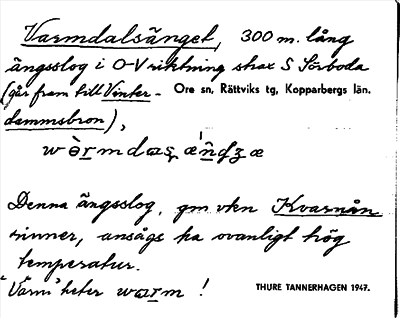 Varmdalsänget, 300 m. lång
ängsslog i O-V riktning strax S Sörboda
(går fram till Vinter- Ore sn, Rättviks tg, Kopparbergs län.
dammsbron),
Denna ängsslog, gm vkn Kvarnån
rinner, ansågs ha ovanligt hög
temperatur.
"Varm" heter warm!
THURE TANNERHAGEN 1947.